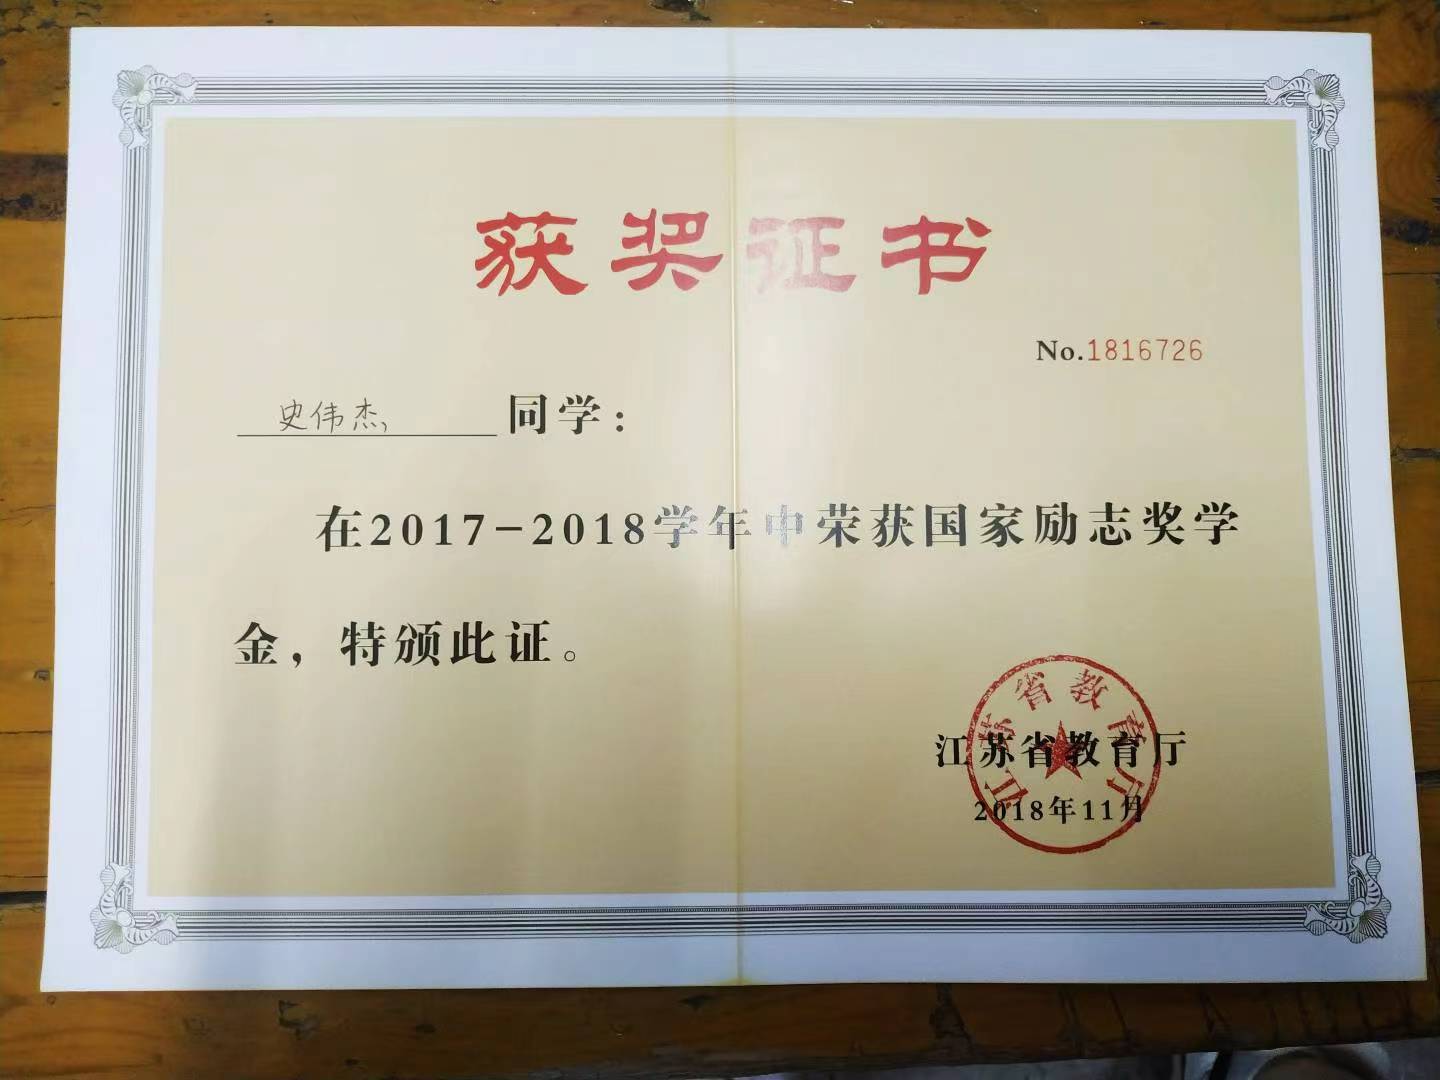 获奖证书
No.1816726
史伟杰, 同学:
在2017-2018学年中荣获国家励志奖学
金，特颁此证。
江苏省教育厅
江苏省教育厅
2018年11月